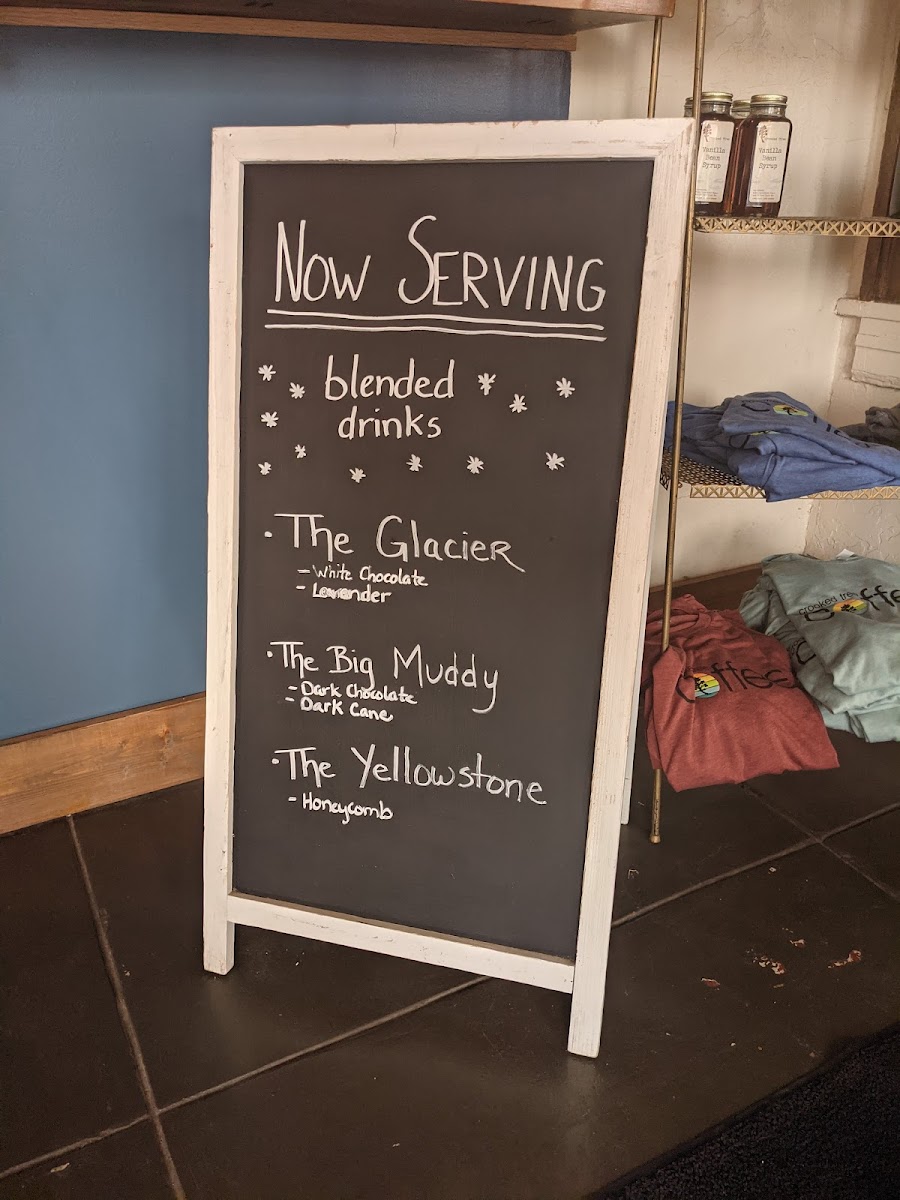 NOW SERVING
blended
drinks
· The Glacier
- White Chocolate
- Lavender
· The Big Muddy
- Dark Chocolate
- Dark Cane
· The Yellowstone
- Honeycomb
Vanilla
Bean
Syrup
Vanilla
Bean
Syrup
coffee
crooked tree
coffee